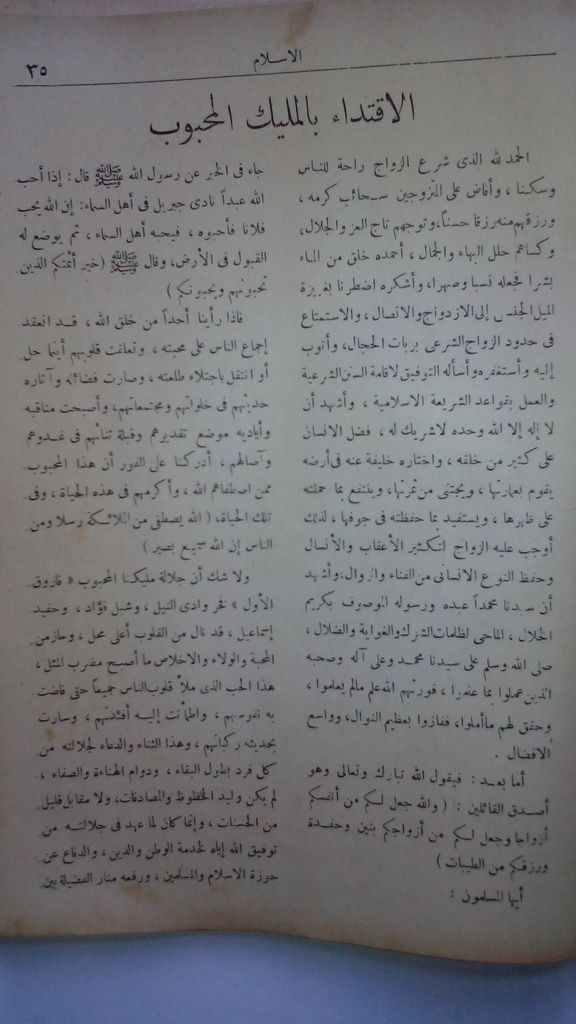 ٣٥
الاسلام
الاقتداء بالمليك المحبوب
الحمد لله الذى شرع الزواج راحة للناس
وسكنا ، وأفاض على المتزوجين سحائب كرمه ،
ورزقهم منه رزقا حسناً، وتوجهم تاج العز والجلال،
وكساهم حلل البهاء والجمال ، أحمده خلق من الماء
بشرا فجعله نسبا وصهرا، وأشكره اضطرنا بغريزة
الميل الجنسى إلى الازدواج والاتصال ، والاستمتاع
فى حدود الزواج الشرعى بربات الحجال، وأتوب
إليه وأستغفره وأسأله التوفيق لاقامة السنن الشرعية
والعمل بقواعد الشريعة الاسلامية ، وأشهد أن
لا إله إلا الله وحده لاشريك له ، فضل الانسان
على كثير من خلقه ، واختاره خليفة عنه فى أرضه
يقوم بعمارتها ، ويجتنى من ثمرتها، وينتفع بما حملته
على ظهرها ، ويستفيد بما حفظته فى جوفها ، لذلك
أوجب عليه الزواج لتكثير الأعقاب والأنسال
وحفظ النوع الانسانى من الفناء والزوال، وأشهد
أن سيدنا محمداً عبده ورسوله الموصوف بكريم
الخلال ، الماحى لظلمات الشرك والغواية والضلال ،
صلى الله وسلم على سيدنا محمد وعلى آله وصحبه
الذين عملوا بما علموا ، فورثهم الله علم مالم يعلموا ،
وحقق لهم ماأملوا، ففازوا بعظيم النوال، وواسع
الافضال .
أما بعد : فيقول الله تبارك وتعالى وهو
أصدق القائلين : ( والله جعل لكم من أنفسكم
أزواجا وجعل لكم من أزواجكم بنين وحفدة
ورزقكم من الطيبات )
أيها المسلمون :
جاء فى الخبر عن رسول الله ﷺ قال : إذا أحب
الله عبداً نادى جبريل فى أهل السماء: إن الله يحب
فلانا فأحبوه ، فيحبه أهل السماء ، ثم يوضع له
القبول فى الأرض، وقال ﷺ (خير أئمتكم الذين
تحبونهم ويحبونكم )
فاذا رأينا أحداً من خلق الله ، قد انعقد
إجماع الناس على محبته ، وتعلقت قلوبهم أينما حل
أو انتقل باجتلاء طلعته ، وصارت فضائله وآثاره
حديثهم فى خلواتهم ومجتمعاتهم، وأصبحت مناقبه
وأياديه موضع تقديرهم وقبلة ثنائهم فى غدوهم
وآصالهم ، أدركنا على الفور أن هذا المحبوب
ممن اصطفاهم الله ، وأكرمهم فى هذه الحياة ، وفى
تلك الحياة، ( الله يصطفى من الملائكة رسلا ومن
الناس إن الله سميع بصير )
ولا شك أن جلالة مليكنا المحبوب « فاروق
الأول » نفر وادى النيل ، وشبل فؤاد ، وحفيد
إسماعيل ، قد نال من القلوب أعلى محل ، وحاز من
المحبة والولاء والاخلاص ما أصبح مضرب المثل ،
هذا الحب الذى ملأ قلوب الناس جميعاً حتى فاضت
به نفوسهم ، واطمأنت إليه أفئدتهم ، وسارت
بحديثه ركبانهم ، وهذا الثناء والدعاء لجلالته من
كل فرد بطول البقاء ، ودوام الهناءة والصفاء ،
لم يكن وليد الحظوظ والمصادفات، ولا مقابل قليل
من الحسنات ، وإنما كان لما عهد فى جلالته من
توفيق الله إياه لخدمة الوطن والدين ، والدفاع عن
حوزة الاسلام والمسلمين ، ورفعه منار الفضيلة بين